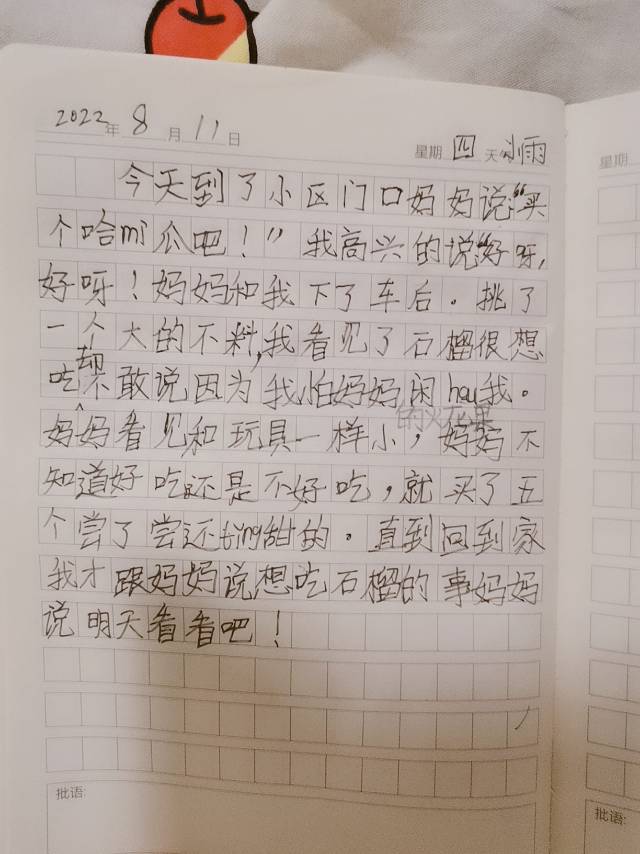 2022年8月11日 星期四 天气小雨
星期
今天到了小区门口妈妈说"买
个哈mi瓜吧！"我高兴的说"好呀,
好呀！妈妈和我下了车后。挑了
一个大的不料,我看见了石榴很想
吃却不敢说因为我怕妈妈闲hou我。
的火龙果
妈妈看见和玩具一样小，妈妈不
知道好吃还是不好吃，就买了五
个尝了尝还ting甜的。直到回到家
我才跟妈妈说想吃石榴的事妈妈
说明天看看吧！
批语:
批语: